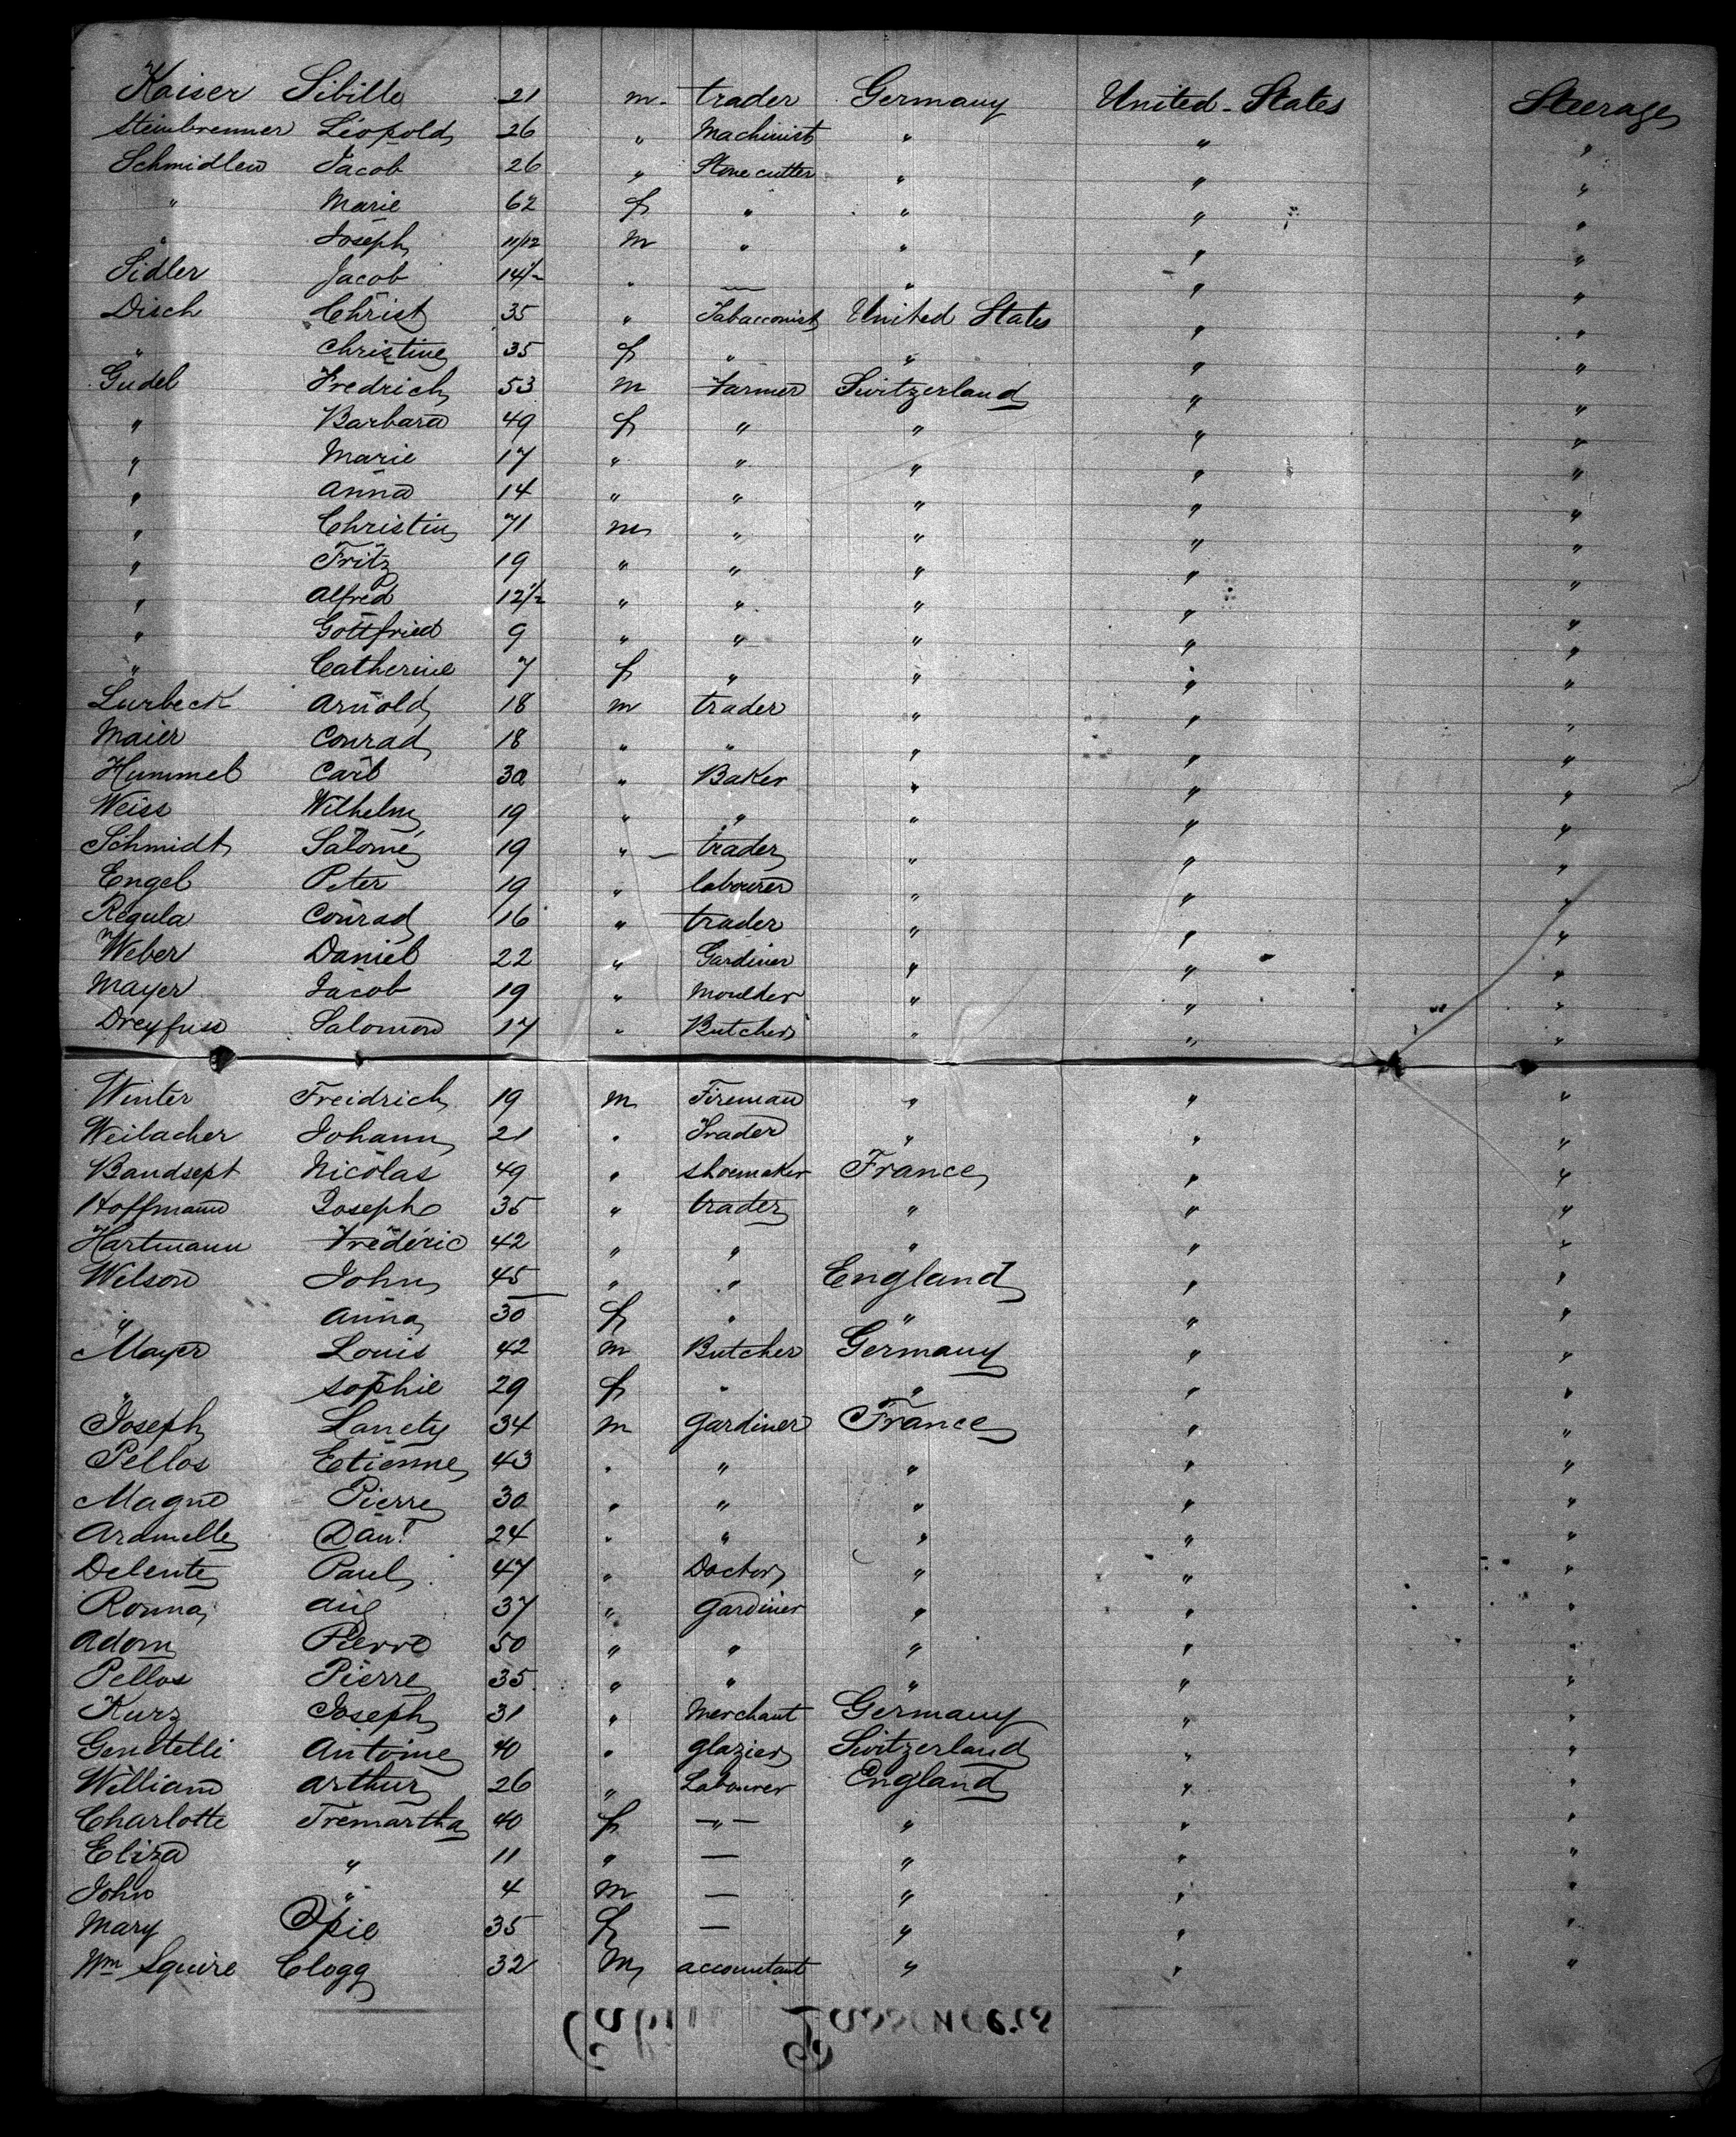 Kaiser Sibille 21 m. trader Germany United States Steerage
Steinbrenner Léopold 26 " Machinist " " "
Schmidlen Jacob 26 " Stone cutter " " "
" Marie 62 f " " " "
" Joseph 11/12 m " " " "
Sidler Jacob 14½ " — " " "
Disch Christ 35 " Tabacconist United States " "
" Christine 35 f " " " "
Gudel Fredrich 53 m Farmer Switzerland " "
" Barbara 49 f " " " "
" Marie 17 " " " " "
" Anna 14 " " " " "
" Christin 71 m " " " "
" Fritz 19 " " " " "
" Alfred 12½ " " " " "
" Gottfried 9 " " " " "
" Catherine 7 f " " " "
Lurbeck Arnold 18 m trader " " "
Maier Conrad 18 " " " " "
Hummel Carl 30 " Baker " " "
Weiss Wilhelm 19 " " " " "
Schmidt Salomé 19 " — trader " " "
Engel Peter 19 " labourer " " "
Regula Conrad 16 " trader " " "
Weber Daniel 22 " Gardiner " " "
Mayer Jacob 19 " Moulder " " "
Dreyfuss Salomon 17 " Butcher " " "
Winter Freidrich 19 m Fireman " " "
Weilacher Johann 21 " Trader " " "
Bandsept Nicolas 49 " shoemaker France " "
Hoffmann Joseph 35 " trader " " "
Hartmann Frédéric 42 " " " " "
Wilson John 45 " " England " "
" Anna 30 f " " " "
Mayer Louis 42 m Butcher Germany " "
" Sophie 29 f " " " "
Joseph Lancty 34 m Gardiner France " "
Pellos Etienne 43 " " " " "
Magne Pierre 30 " " " " "
Aramelle Dan! 24 " " " " "
Delente Paul 47 " Doctor " " "
Ronna aug 37 " Gardiner " " "
Adom Pierre 50 " " " " "
Pellos Pierre 35 " " " " "
Kurz Joseph 31 " Merchant Germany " "
Genetelli Antoine 40 " glazier Switzerland " "
William Arthur 26 " Labourer England " "
Charlotte Tremartha 40 f —"— " " "
Eliza " 11 " — " " "
John " 4 m — " " "
Mary Opie 35 f — " " "
Wm Squire Clogg 32 m accountant " " "
Cabin Passengers